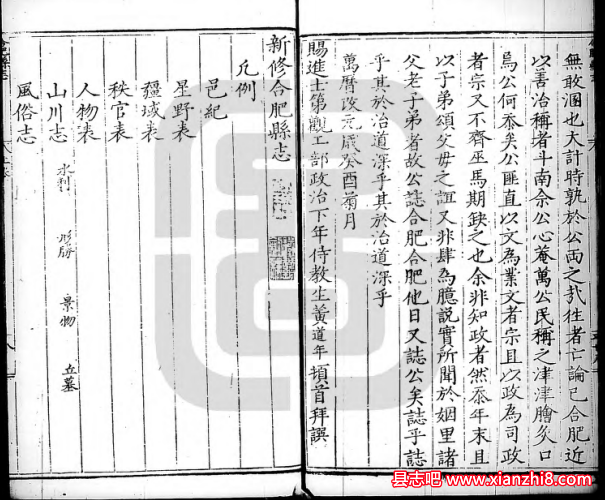 無敢溷也大計時孰於公兩之㢤往者亡論已合肥近
以善治稱者斗南余公心菴萬公民稱之津津膾炙口
烏公何忝矣公匪直以文為業文者宗且以政為司政
者宗又不齊巫馬期缺之也余非知政者然忝年末且
以子弟頌父母之誼又非肆為臆説實所聞於姻里諸
父老子弟者故公誌合肥合肥他日又誌公矣誌乎誌
乎其於治道深乎其於治道深乎
萬曆改元歳癸酉菊月
賜進士第觀工部政治下年侍教生黄道年頓首拜譔
新修合肥縣志
凡例
邑紀
星野表
疆域表
秩官表
人物表
山川志
水利 形勝 景物 丘墓
風俗志
县志吧
www.xianzhi8.com